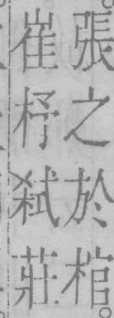 張之於棺
崔杼弒莊